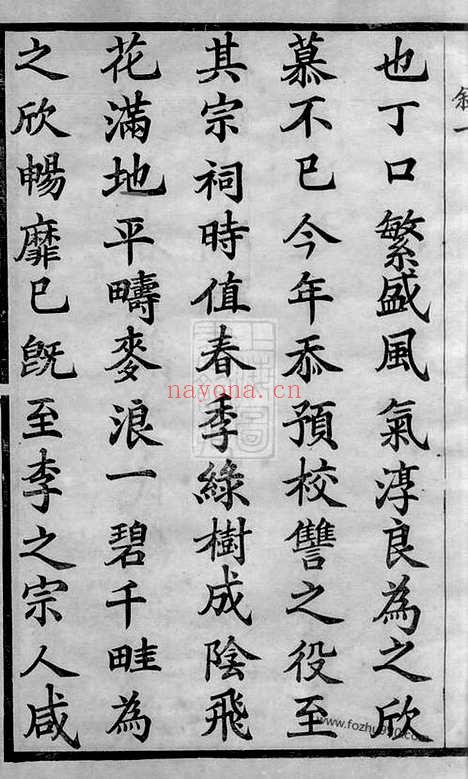 叙一
也丁口繁盛風氣淳良為之欣
慕不已今年忝預校讐之役至
其宗祠時值春季綠樹成陰飛
花滿地平疇麥浪一碧千畦為
之欣暢靡已旣至李之宗人咸
nayona.cn